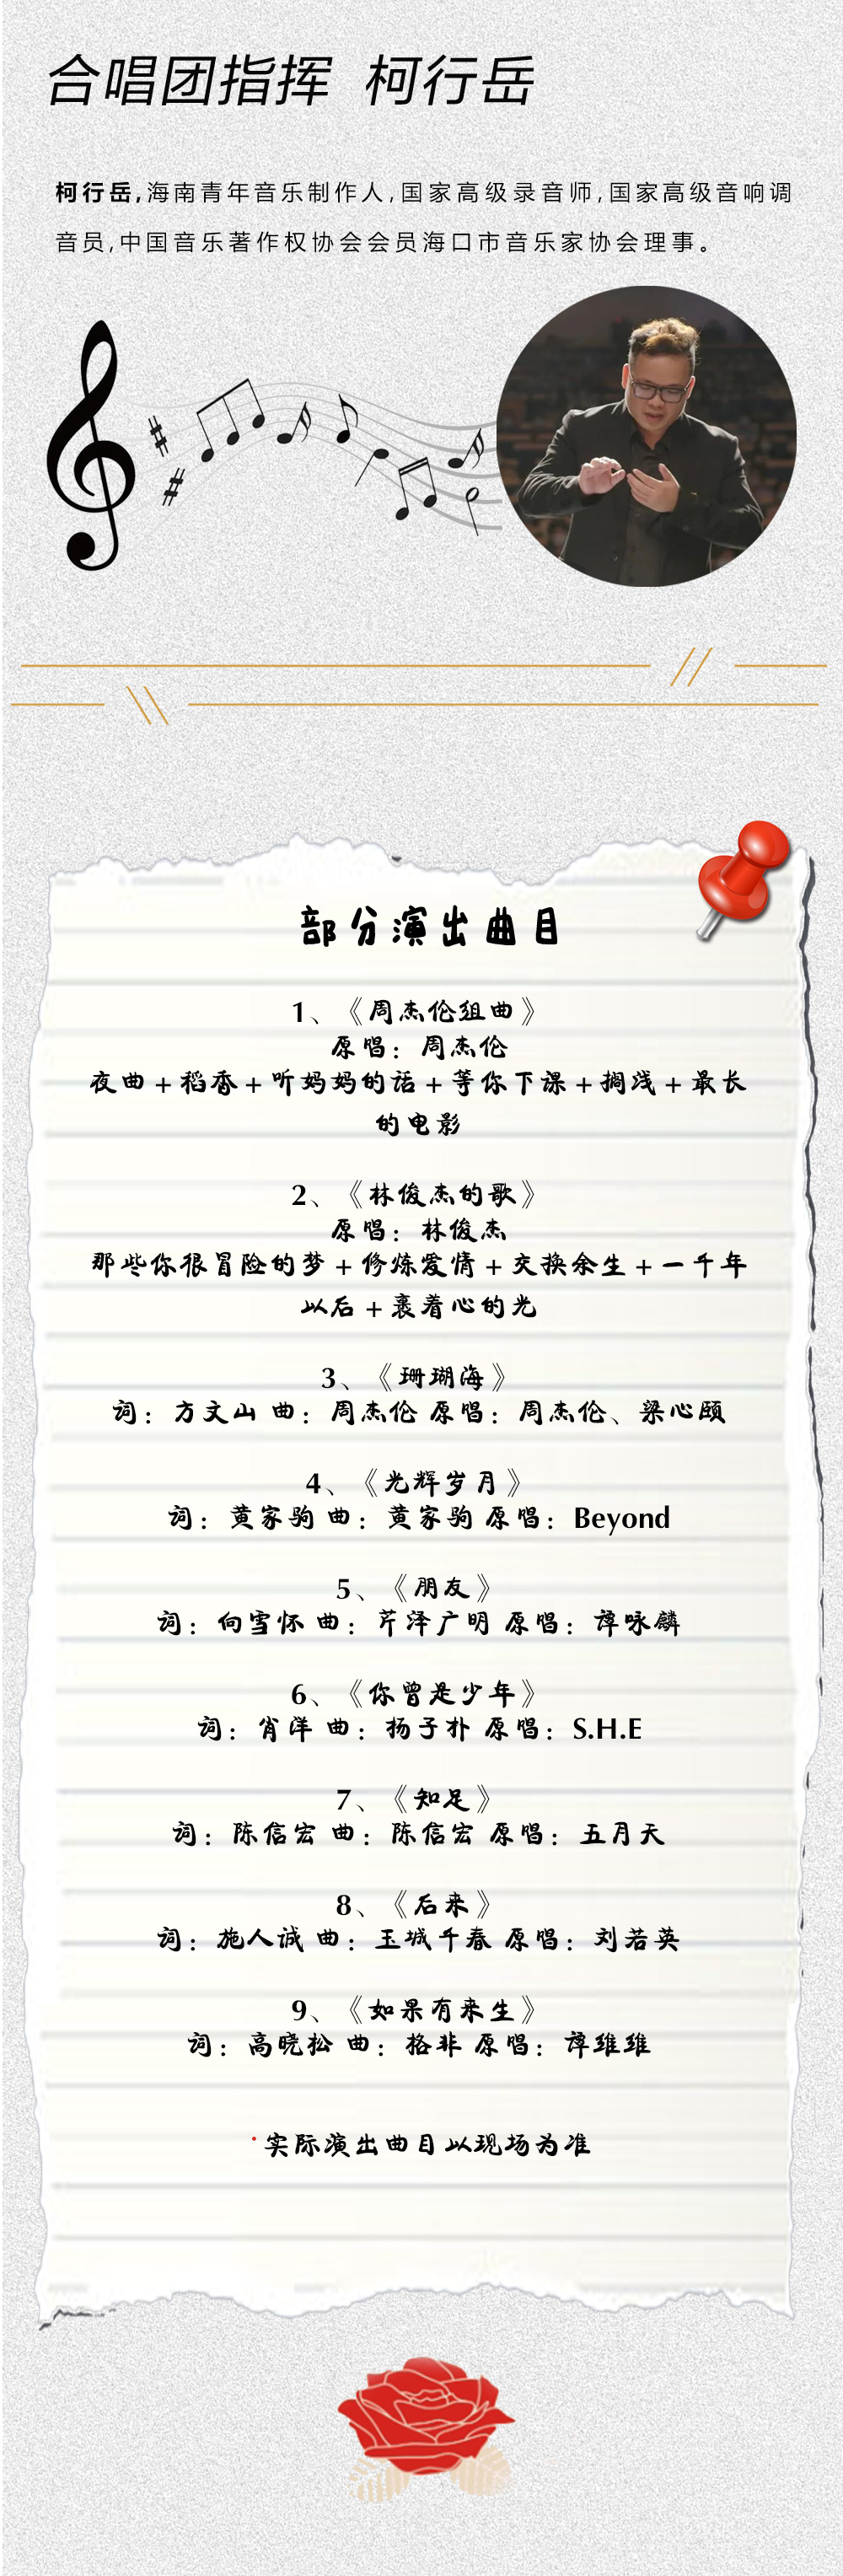 合唱团指挥 柯行岳
柯行岳,海南青年音乐制作人,国家高级录音师,国家高级音响调
音员,中国音乐著作权协会会员海口市音乐家协会理事。
部分演出曲目
1、《周杰伦组曲》
原唱：周杰伦
夜曲+稻香+听妈妈的话+等你下课+搁浅+最长
的电影
2、《林俊杰的歌》
原唱：林俊杰
那些你很冒险的梦+修炼爱情+交换余生+一千年
以后+裹着心的光
3、《珊瑚海》
词：方文山 曲：周杰伦 原唱：周杰伦、梁心颐
4、《光辉岁月》
词：黄家驹 曲：黄家驹 原唱：Beyond
5、《朋友》
词：向雪怀 曲：芹泽广明 原唱：谭咏麟
6、《你曾是少年》
词：肖洋 曲：杨子朴 原唱：S.H.E
7、《知足》
词：陈信宏 曲：陈信宏 原唱：五月天
8、《后来》
词：施人诚 曲：玉城千春 原唱：刘若英
9、《如果有来生》
词：高晓松 曲：格非 原唱：谭维维
·实际演出曲目以现场为准